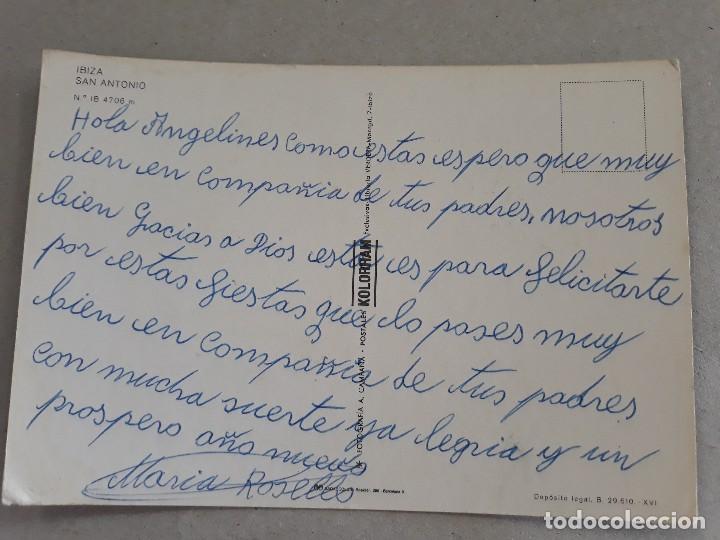 IBIZA
SAN ANTONIO
N.º IB 4706 m
Hola Angelines como estas espero que muy
bien en compañia de tus padres, nosotros
bien Gracias a Dios esta es para felicitarte
por estas fiestas que lo pases muy
bien en compañia de tus padres
con mucha suerte ya legria y un
prospero año nuevo
Maria Rosello
FOTOGRAFIA A. CAMPAÑA - POSTALES KOLORHAM
Depósito legal, B. 29.510. - XVI
todocoleccion.net